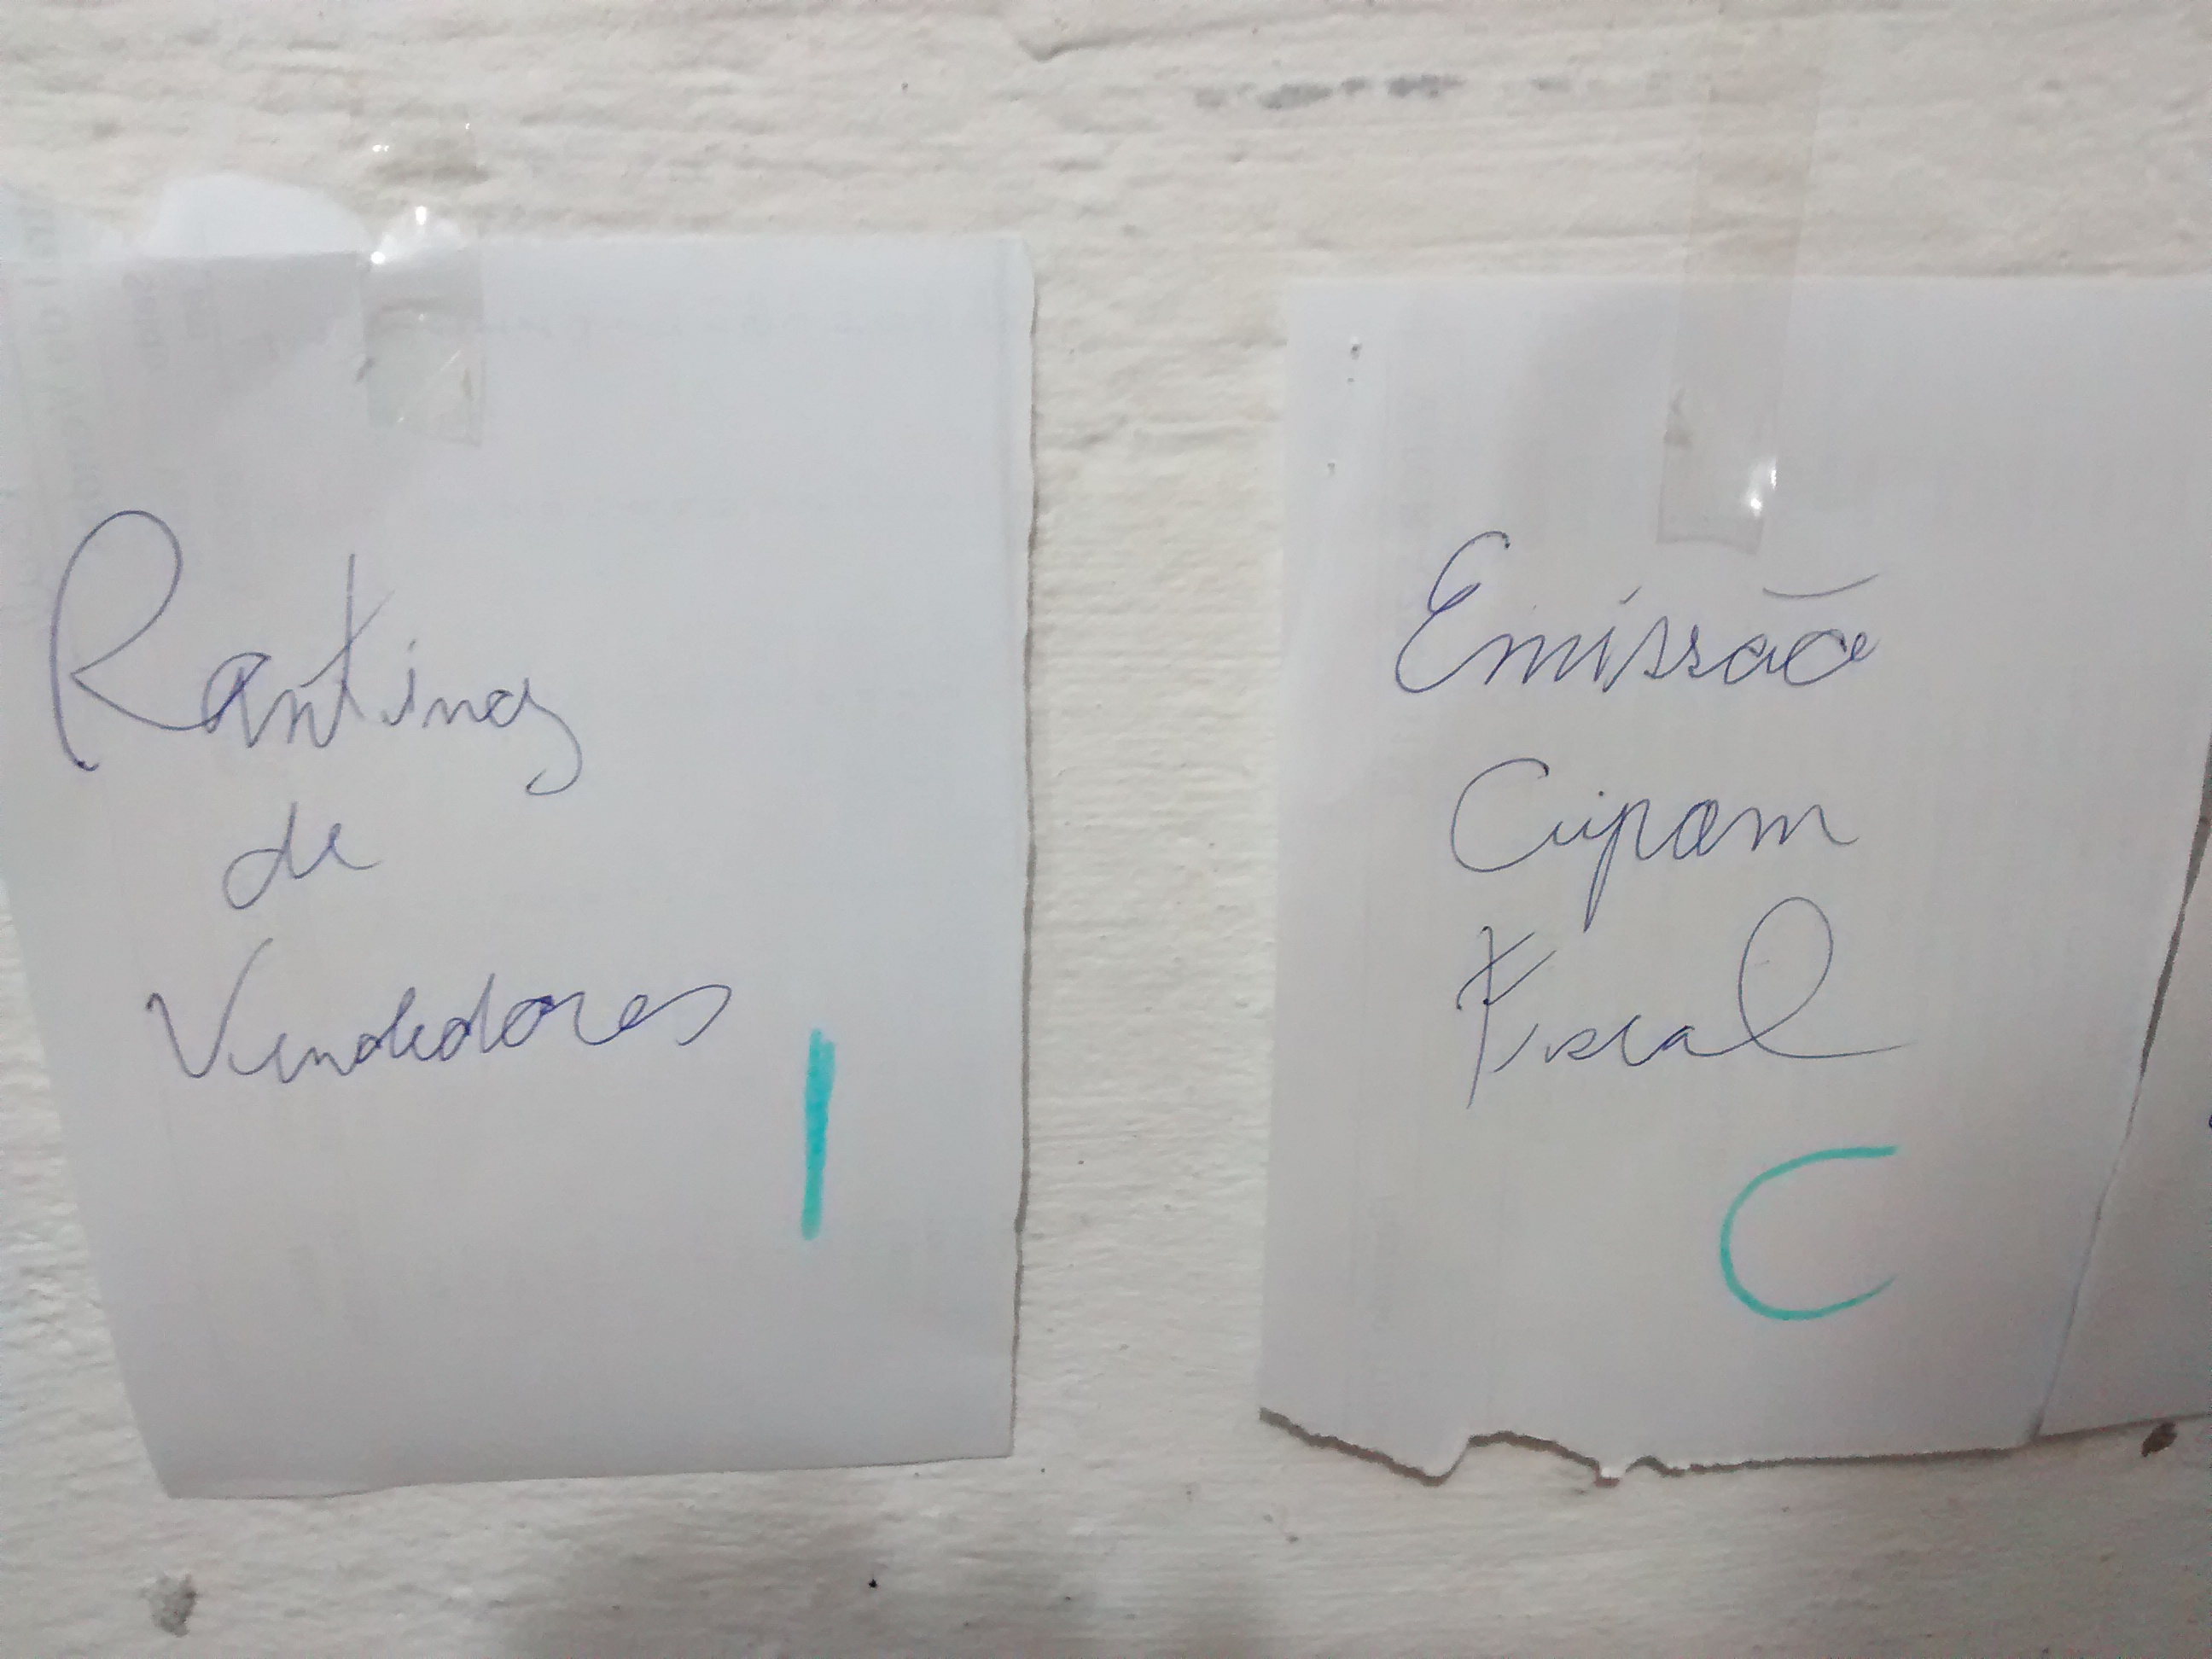 Ranking
de
Vendedores
I
Emissão
Cupom
Fiscal
C